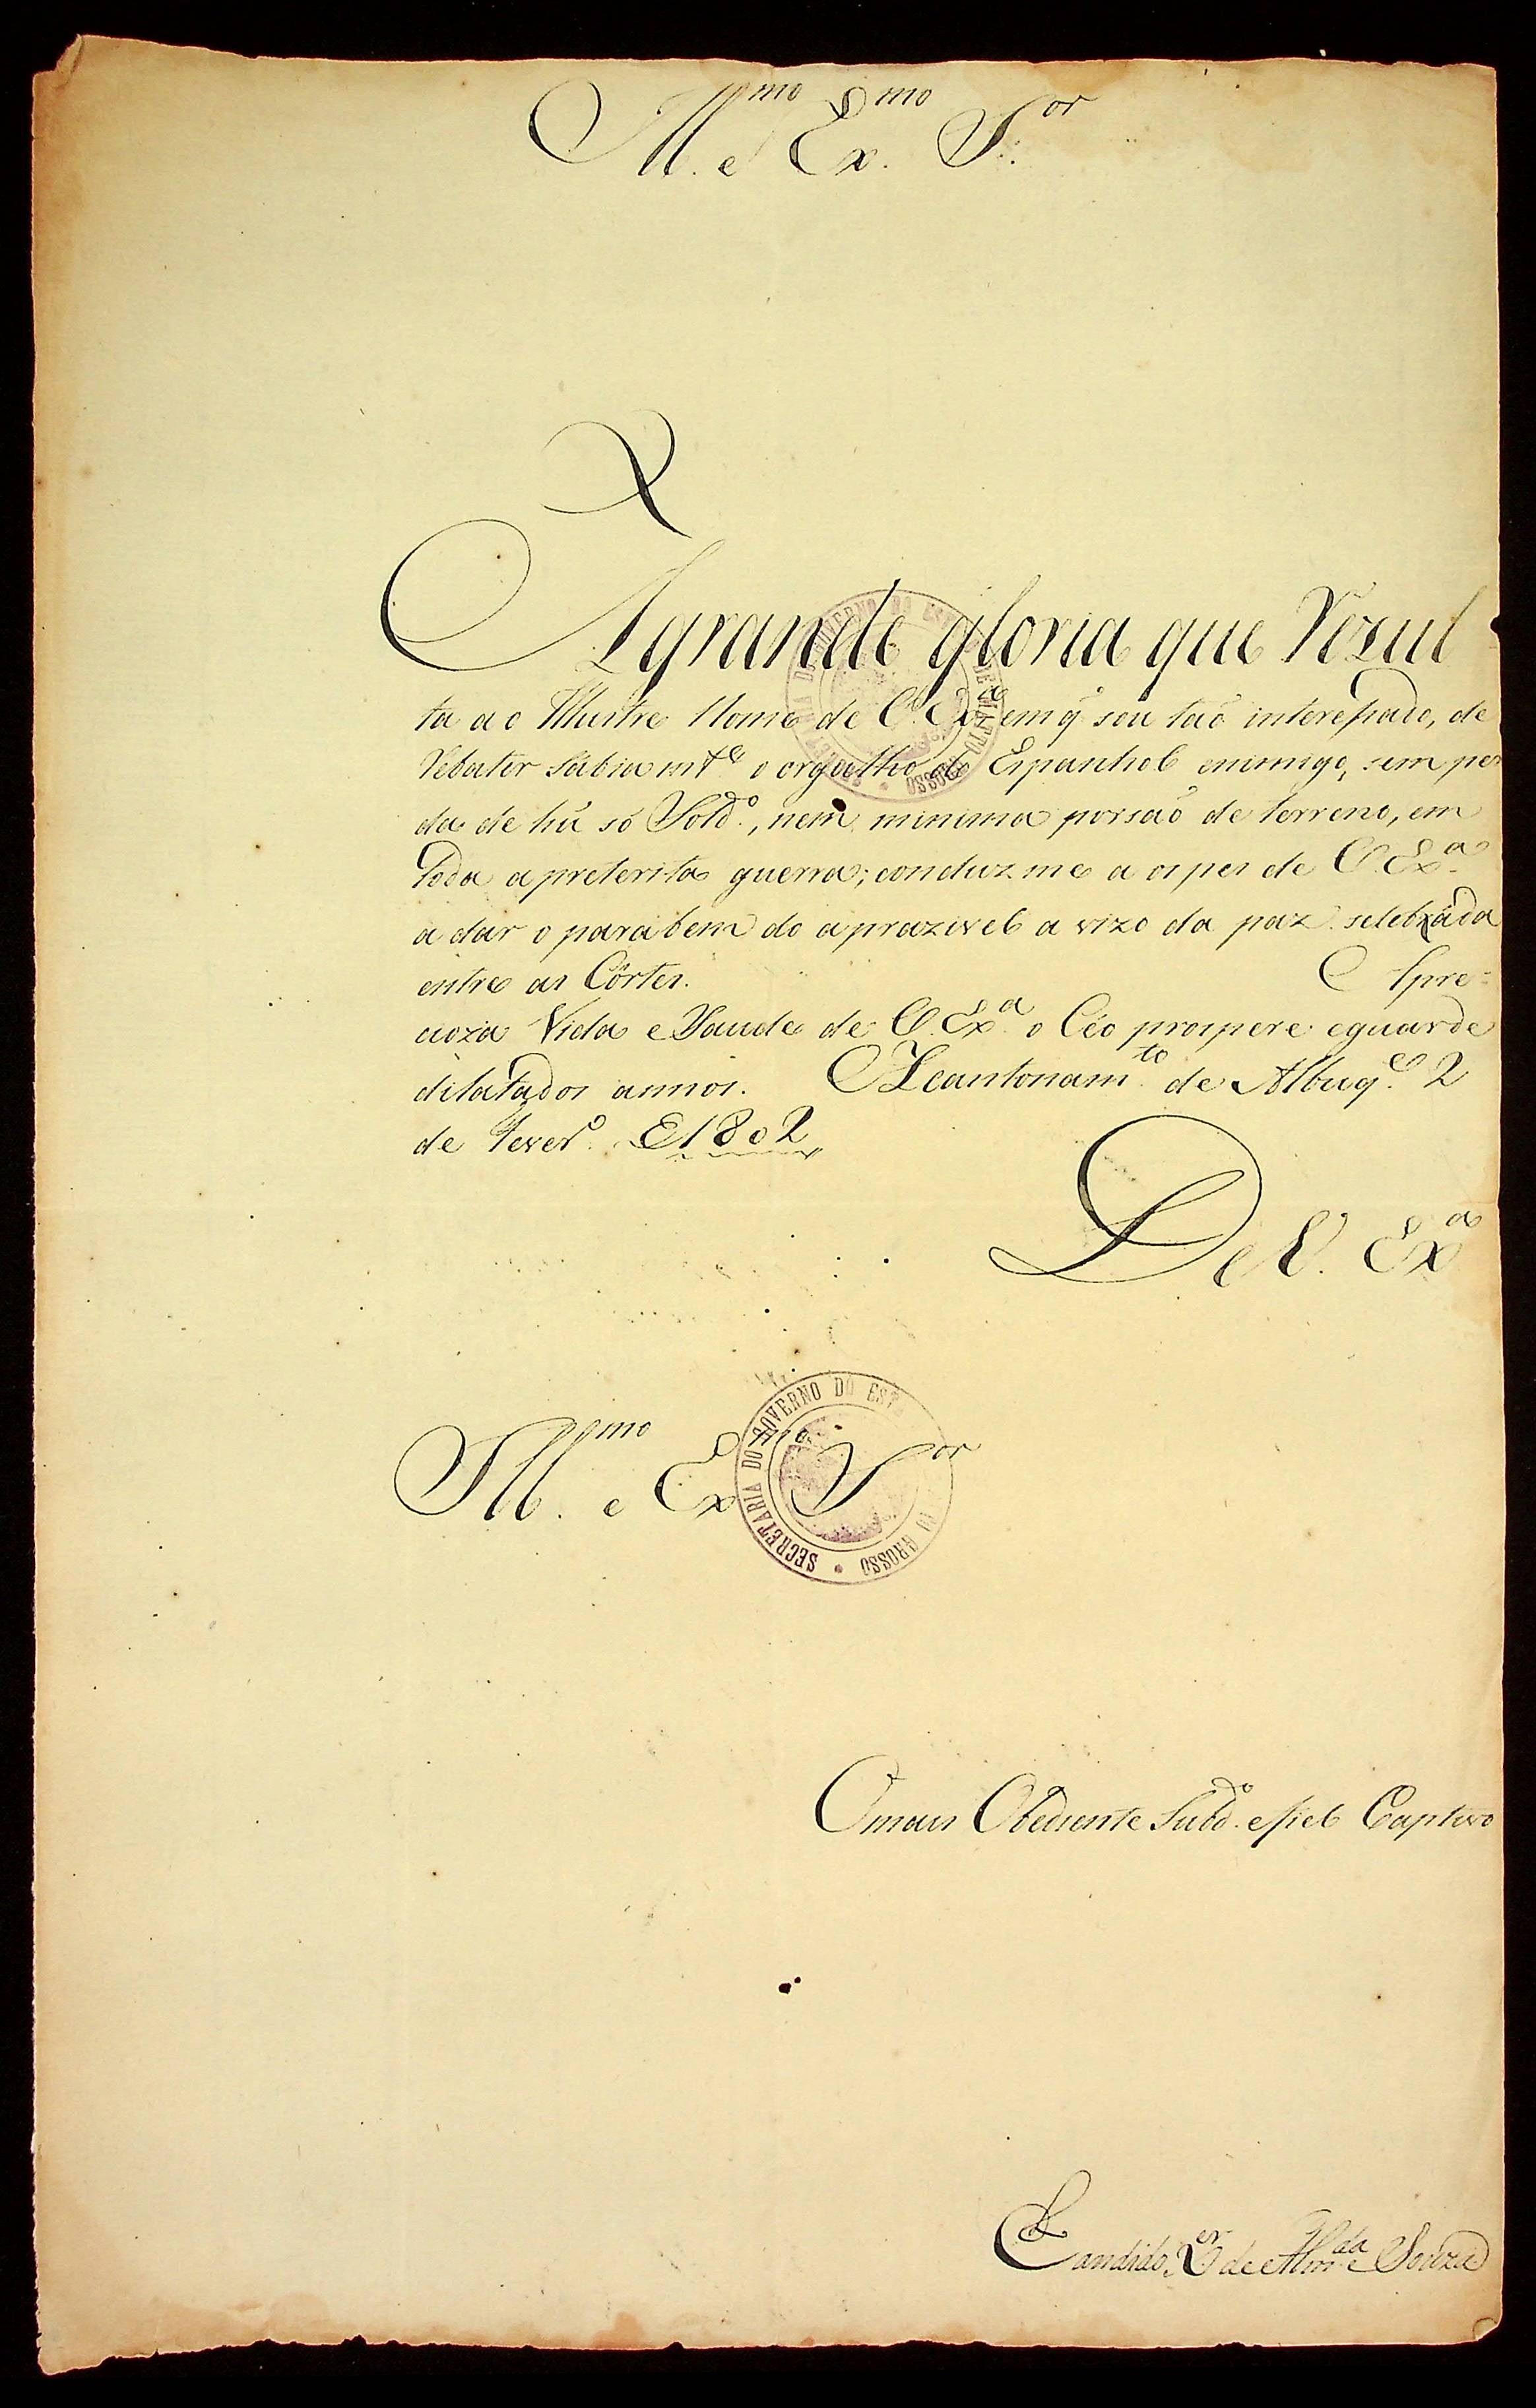 Ill.mo e Ex.mo S.or
A grande gloria que Rezul
ta ao Illustre Nome de V. Ex.a em q̃ sou taõ interessado, de
Rebater Sabiam.te o orgulho do Espanhol enimigo, sem per
da de hũ só Sold.o, nem minima porsaõ de terreno, em
toda a preterita guerra; conduz me a os pes de V. Ex.a
a dar o parabem do aprazivel a vizo da paz selebrada
entre as Côrtes. A pre=
cioza Vida e Saude de V. Ex.a o Céo prospere e guarde
dilatados annos. Acantonam.to de Albuq.e 2
de Fever.o de 1802
De V. Ex.a
Ill.mo e Ex.mo S.or
O mais Obediente Subd.o e fiel Captivo
Candido X.er de Alm.da e Souza
SECRETARIA DO GOVERNO DO ESTADO DE MATTO GROSSO
SECRETARIA DO GOVERNO DO EST TO GROSSO